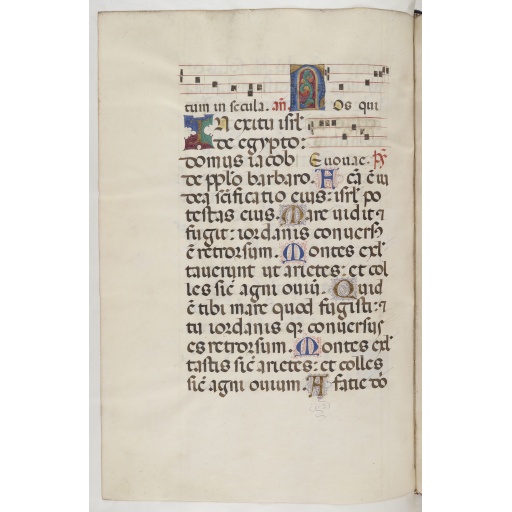 tum in secula. añ. Nos qui
In exitu isrl̃
de egypto:
domus iacob Euouae. p̃s
de pp̃lo barbaro. Fcã ẽ iu
dea sc̃ificatio eius: isrl̃ po
testas eius. Mare uidit ⁊
fugit: iordanis conuersꝰ
ẽ retrorsum. Montes exl̃
tauerunt ut arietes: et col
les sic̃ agni ouiũ. Quid
ẽ tibi mare quod fugisti: ⁊
tu iordanis qr̃ conuersus
es retrorsum. Montes exl̃
tastis sic̃ arietes: et colles
sic̃ agni ouium. A facie dõ